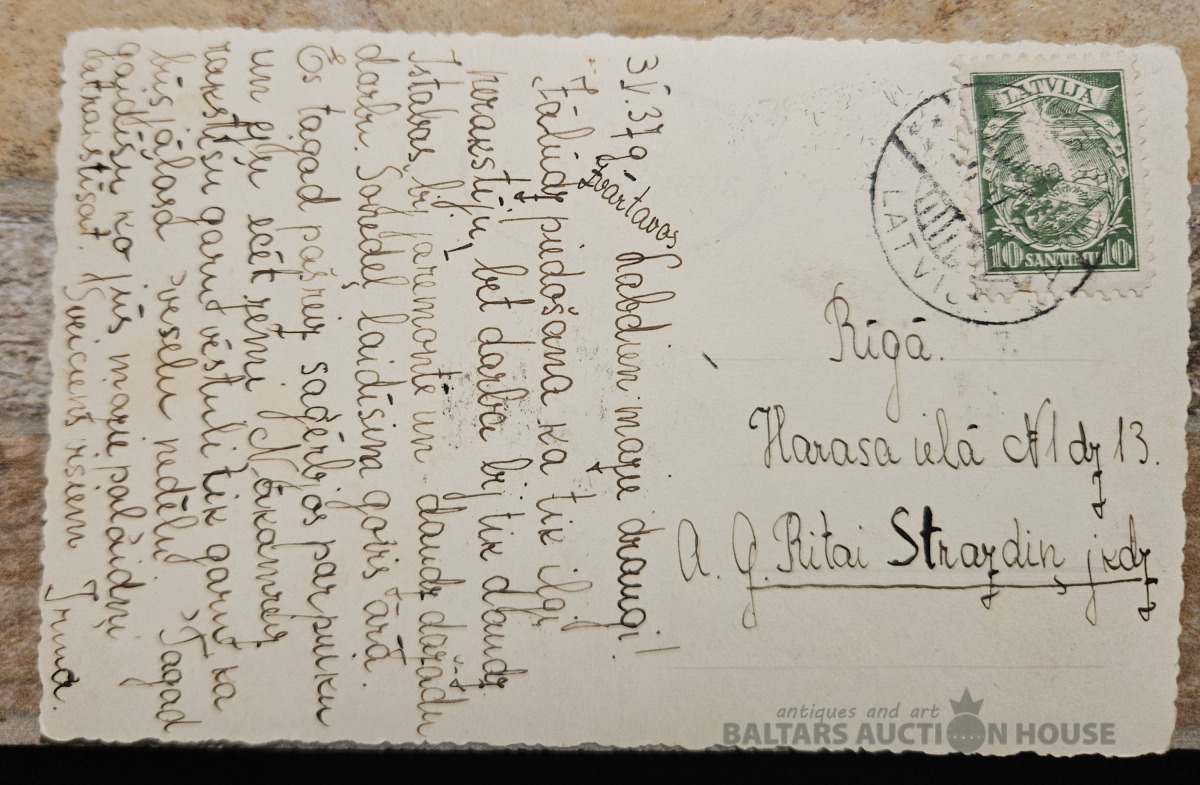 3.V.37 g. Zvārtavos
Labdien maņie draugi!
Žēlīdz piedošana ka tik ilgi
nerakstīju, bet darba bij tik daudz.
Istabas, bij jaremontē un daudz dažadu
darbu. Šonedeļ laidīsim govis ārā.
Es tagad pašreiz sagērbjos par puiku
un eju ecēt zemi. Nākamreiz
rakstīšu garu vēstuli tik garu ka
būs jālasa veselu nedēļu. Tagad
gaidīšu ko jūs maņie palaidņi
atrakstīsat. Sveicieni visiem Irma.
LATVIJA
10 SANTIMU 10
LATVIJA
Rīgā.
Harasa ielā №1 dz 13.
A. G. Ritai Strazdiņ jkdz
antiques and art
BALTARS AUCTION HOUSE